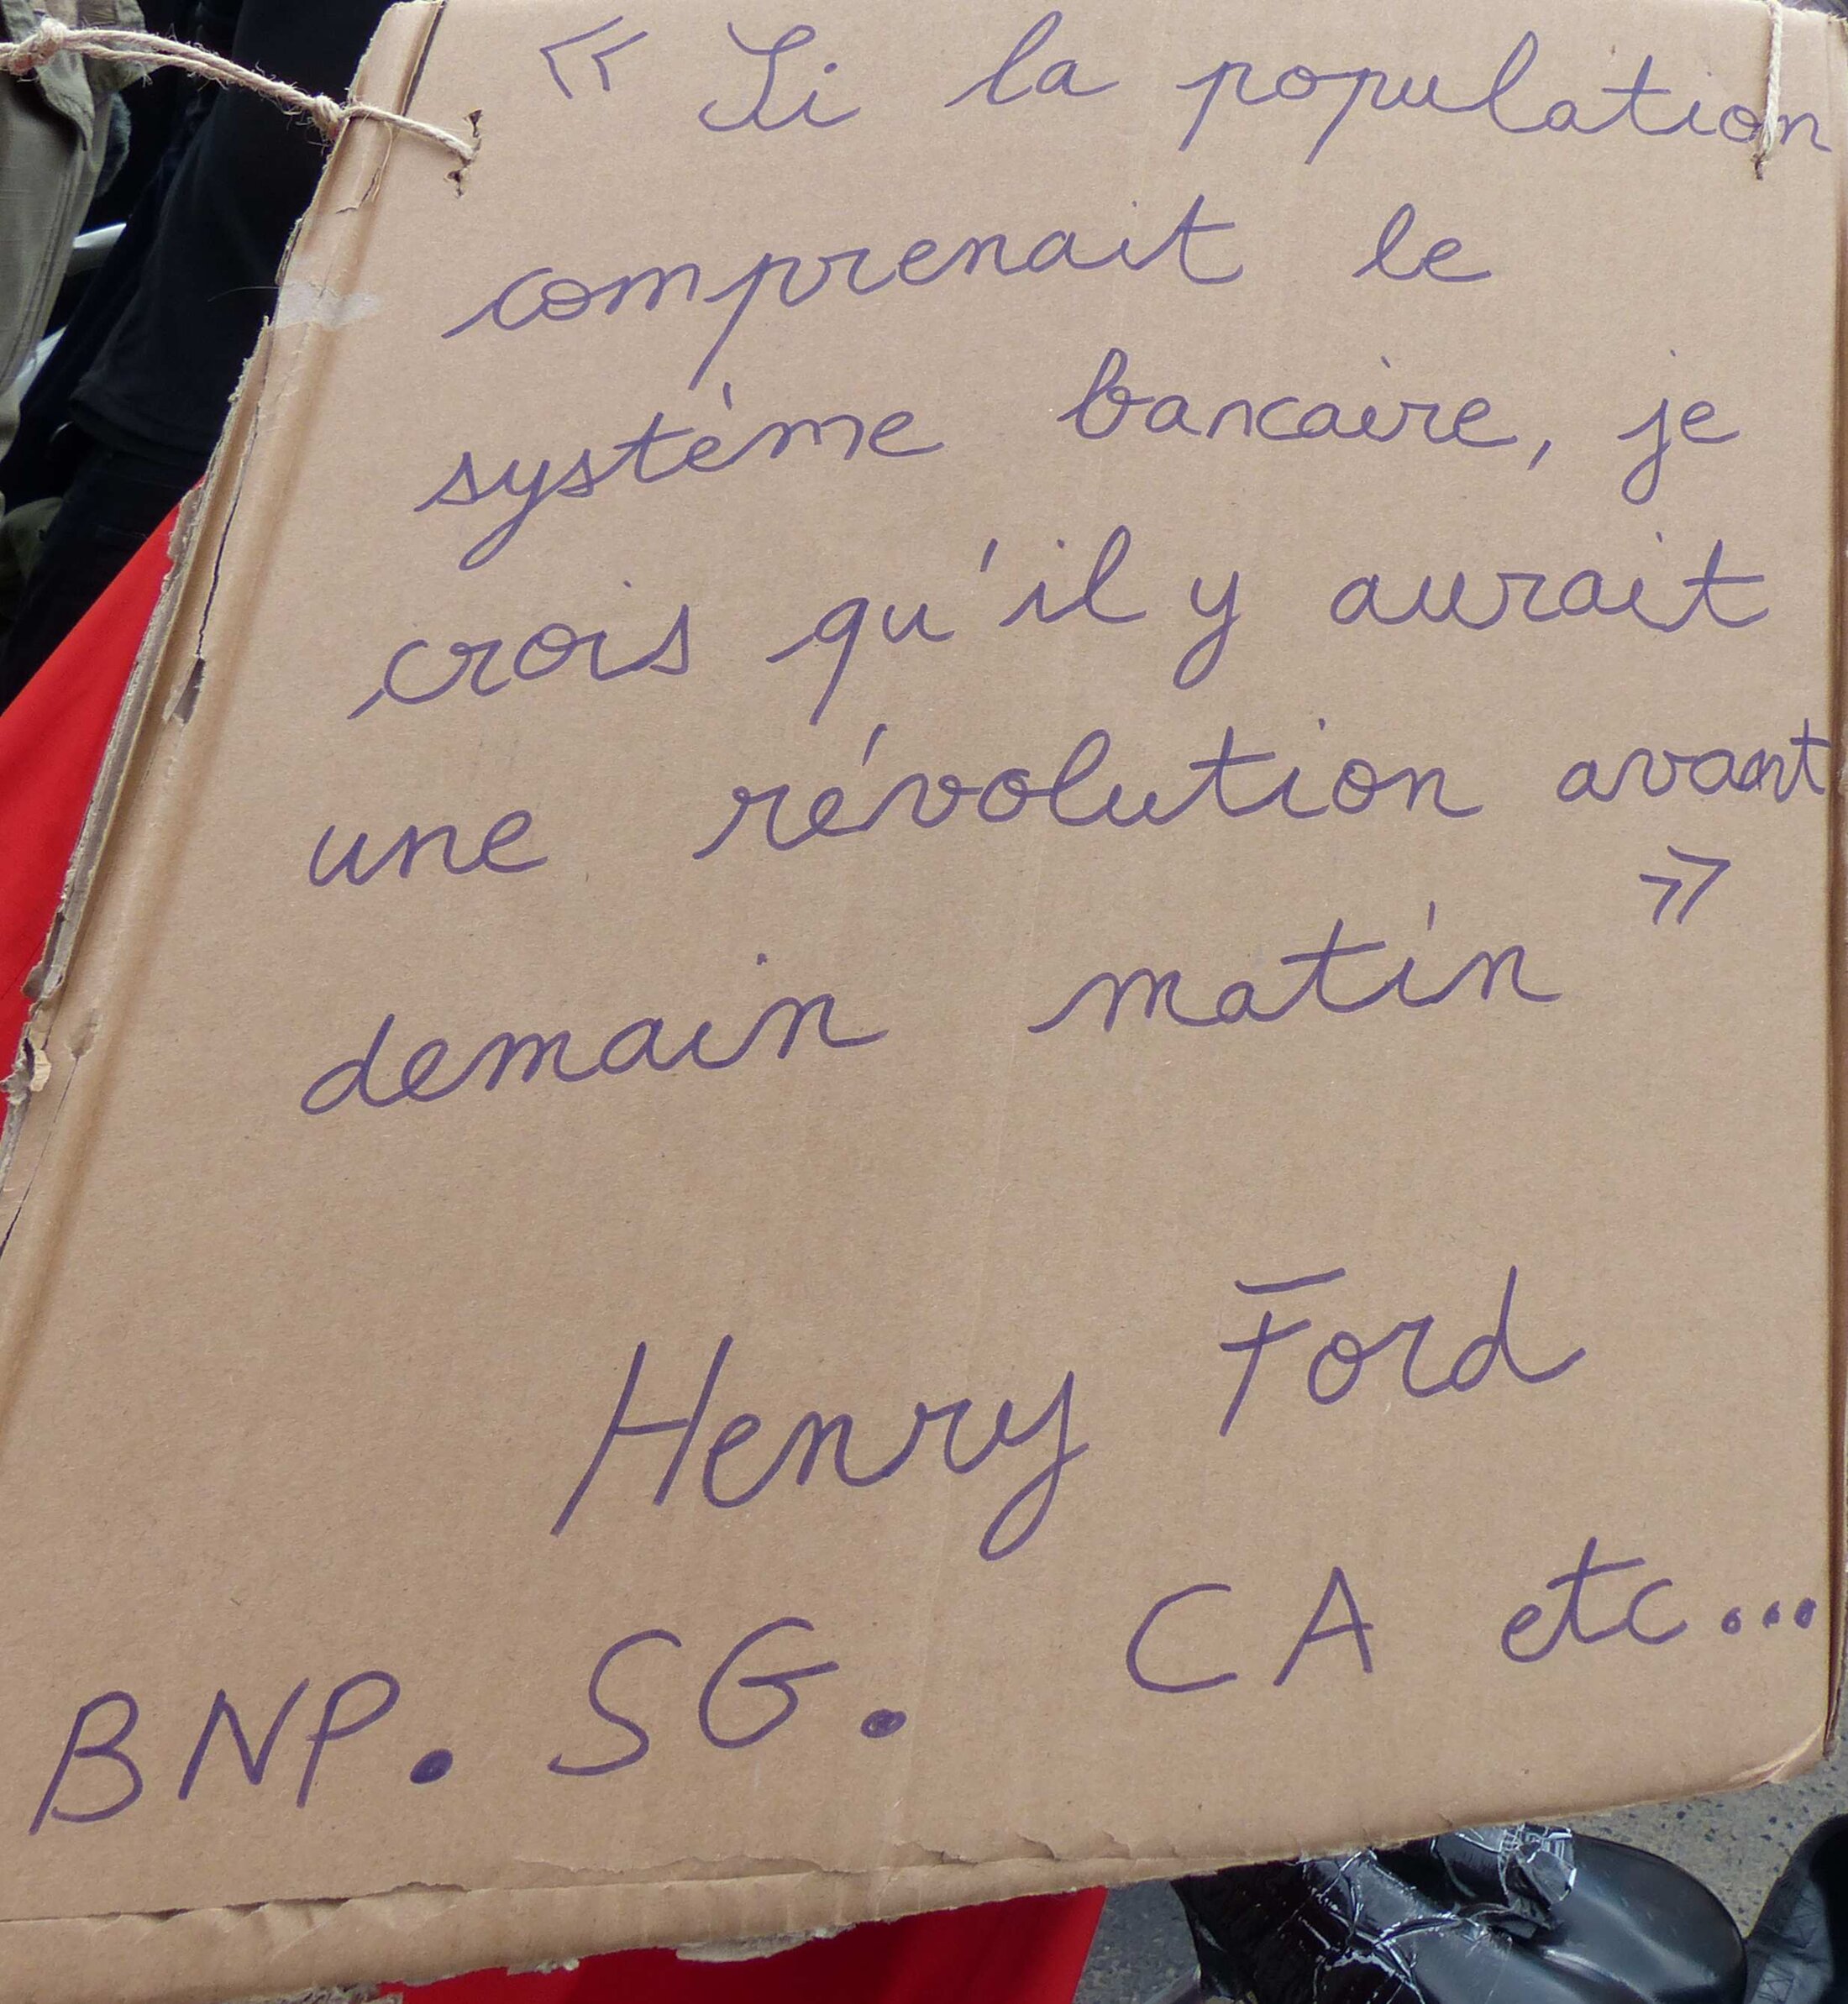 « Si la population
comprenait le
système bancaire, je
crois qu'il y aurait
une révolution avant
demain matin »
Henry Ford
BNP. SG. CA etc...